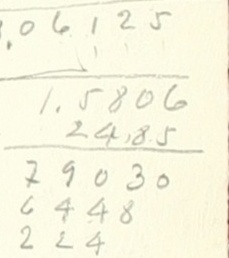 .06125
1.5806
24.85
79030
6448
224